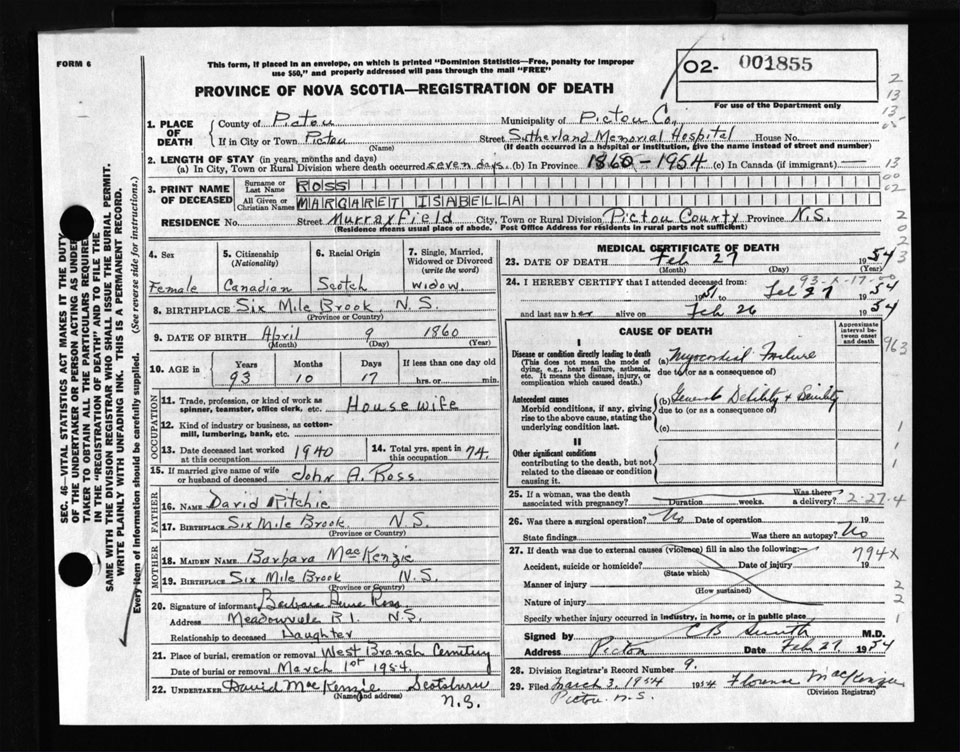 FORM 6
This form, if placed in an envelope, on which is printed "Dominion Statistics—Free, penalty for improper
use $50," and properly addressed will pass through the mail "FREE"
O2- 001855
For use of the Department only
PROVINCE OF NOVA SCOTIA—REGISTRATION OF DEATH
1. PLACE OF DEATH
County of Pictou Municipality of Pictou Co.
If in City or Town Pictou Street Sutherland Memorial Hospital House No.
(Name) (If death occurred in a hospital or institution, give the name instead of street and number)
2. LENGTH OF STAY (in years, months and days)
(a) In City, Town or Rural Division where death occurred seven days. (b) In Province 1860-1954 (c) In Canada (if immigrant) —
3. PRINT NAME OF DECEASED
Surname or Last Name ROSS
All Given or Christian Names MARGARET ISABELLA
RESIDENCE No. Street Murrayfield City, Town or Rural Division Pictou County Province N.S.
(Residence means usual place of abode. Post Office Address for residents in rural parts not sufficient)
4. Sex
Female
5. Citizenship (Nationality)
Canadian
6. Racial Origin
Scotch
7. Single, Married, Widowed or Divorced (write the word)
widow.
8. BIRTHPLACE Six Mile Brook N.S.
(Province or Country)
9. DATE OF BIRTH April 9 1860
(Month) (Day) (Year)
10. AGE in
Years Months Days If less than one day old
93 10 17 hrs. or min.
OCCUPATION
11. Trade, profession, or kind of work as spinner, teamster, office clerk, etc. House wife
12. Kind of industry or business, as cotton-mill, lumbering, bank, etc.
13. Date deceased last worked at this occupation 1940
14. Total yrs. spent in this occupation 74.
15. If married give name of wife or husband of deceased John A. Ross.
FATHER
16. NAME David Ritchie
17. BIRTHPLACE Six Mile Brook. N.S.
(Province or Country)
MOTHER
18. MAIDEN NAME Barbara MacKenzie
19. BIRTHPLACE Six Mile Brook N.S.
(Province or Country)
20. Signature of informant Barbara Ross
Address Meadowville R1. N.S.
Relationship to deceased Daughter
21. Place of burial, cremation or removal West Branch Cemetery
Date of burial or removal March 1st 1954.
22. UNDERTAKER David MacKenzie Scotsburn
(Name and address) N.S.
MEDICAL CERTIFICATE OF DEATH
23. DATE OF DEATH Feb 27 1954
(Month) (Day) (Year)
24. I HEREBY CERTIFY that I attended deceased from
1951 to Feb 27 1954
and last saw her alive on Feb 26 1954
CAUSE OF DEATH
Approximate interval between onset and death
I
Disease or condition directly leading to death
(This does not mean the mode of dying, e.g., heart failure, asthenia, etc. It means the disease, injury, or complication which caused death.)
(a) Myocardial Failure
due to (or as a consequence of)
Antecedent causes
Morbid conditions, if any, giving rise to the above cause, stating the underlying condition last.
(b) General Debility & Senility
due to (or as a consequence of)
(c)
II
Other significant conditions
contributing to the death, but not related to the disease or condition causing it.
25. If a woman, was the death associated with pregnancy? Duration weeks. Was there a delivery?
2-27-4
26. Was there a surgical operation? No Date of operation 19
State findings Was there an autopsy? No
27. If death was due to external causes (violence) fill in also the following:—
794x
Accident, suicide or homicide? Date of injury 19
(State which)
Manner of injury
(How sustained)
Nature of injury
Specify whether injury occurred in industry, in home, or in public place
Signed by CB Smith M.D.
Address Pictou Date Feb 27 1954
28. Division Registrar's Record Number 9.
29. Filed March 3, 1954 1954 Florence MacKenzie
Pictou N.S. (Division Registrar)
SEC. 46—VITAL STATISTICS ACT MAKES IT THE DUTY
OF THE UNDERTAKER OR PERSON ACTING AS UNDER
TAKER TO OBTAIN ALL THE PARTICULARS REQUIRED
IN THE "REGISTRATION OF DEATH" AND TO FILE THE
SAME WITH THE DIVISION REGISTRAR WHO SHALL ISSUE THE BURIAL PERMIT.
WRITE PLAINLY WITH UNFADING INK. THIS IS A PERMANENT RECORD.
Every item of information should be carefully supplied. (See reverse side for instructions.)